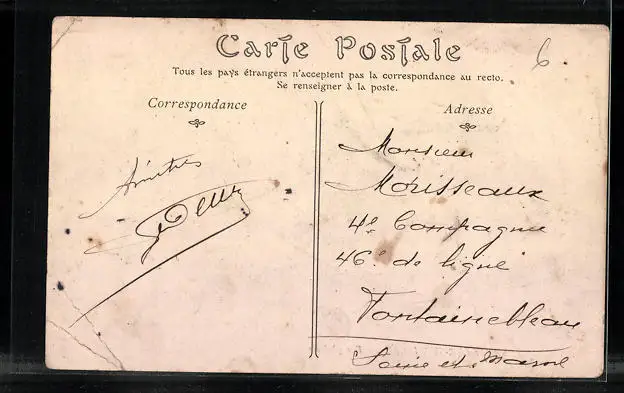 Carte Postale
Tous les pays étrangers n'acceptent pas la correspondance au recto.
Se renseigner à la poste.
Correspondance
Adresse
6
Amitiés
Monsieur
Morisseaux
4e Compagnie
46e de ligne
Fontainebleau
Seine et Marne